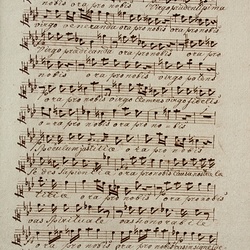 nobis ora pro nobis Virgo prudentissima
virgo veneranda ora pro nobis ora pro nobis
Virgo praedicanda ora pro nobis ora pro
nobis ora pro nobis virgo potens
ora pro nobis virgo clemens virgo fidelis
ora pro nobis ora pro nobis
Speculum justitiae ora pro nobis
Sedes Sapientiae ora pro nobis Causa nostrae
ora pro nobis ora pro nobis
vas Spirituale vas honorabile
ora pro nobis ora pro nobis vas insigne